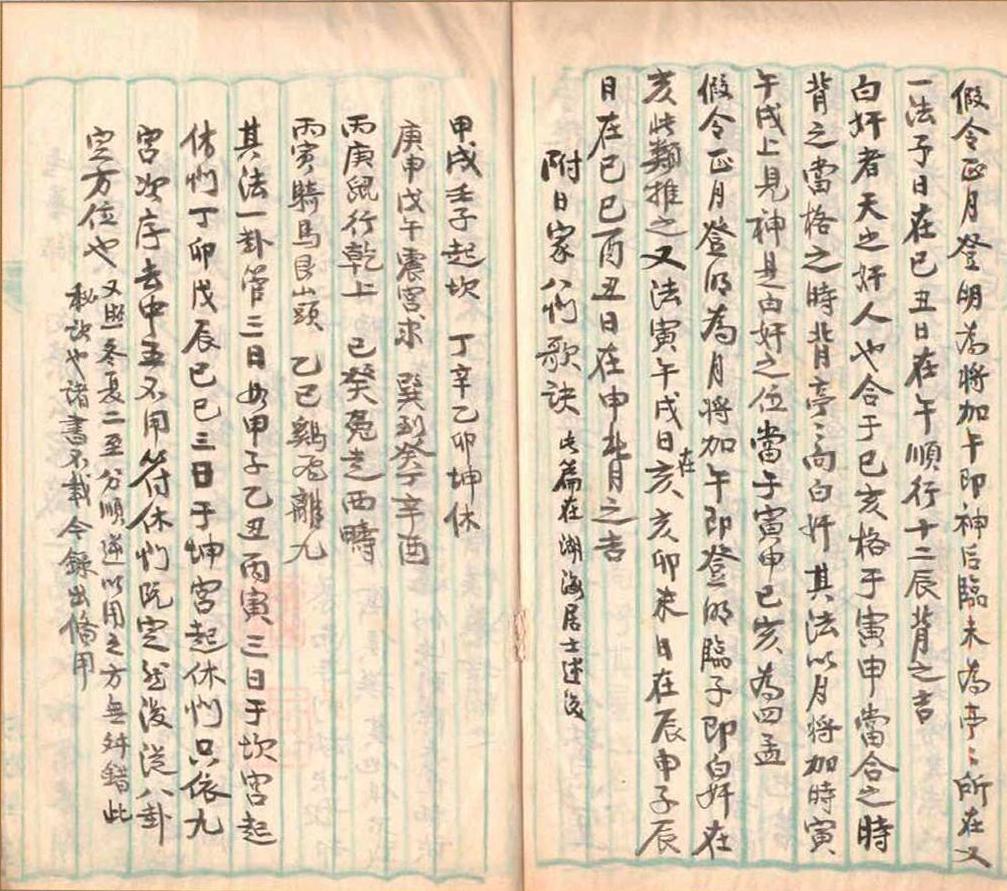 假令正月登明為將加午即神后臨未為亭〻所在又
一法子日在巳丑日在午順行十二辰背之吉
白奸者天之奸人也合于巳亥格于寅申當合之時
背之當格之時背亭〻向白奸其法以月將加時寅
午戌上見神是白奸之位當于寅申巳亥為四孟
假令正月登明為月將加午即登明臨子即白奸在
亥此類推之又法寅午戌日在亥亥卯未日在辰申子辰
日在巳巳酉丑日在申背之吉
附日家八門歌訣 此篇在湖海居士述後
甲戌壬子起坎 丁辛乙卯坤休
庚申戊午震宮求 巽到癸丁辛酉
丙庚鼠行乾上 己癸兔走西疇
丙寅騎馬艮山頭 乙巳鷄飛離九
其法一卦管三日如甲子乙丑丙寅三日于坎宮起
休門丁卯戊辰己巳三日于坤宮起休門只依九
宮次序去中五不用符休門既定然後從八卦
定方位也 又照冬夏二至分順逆以用之方無舛錯此
秘訣也諸書不載今錄出備用